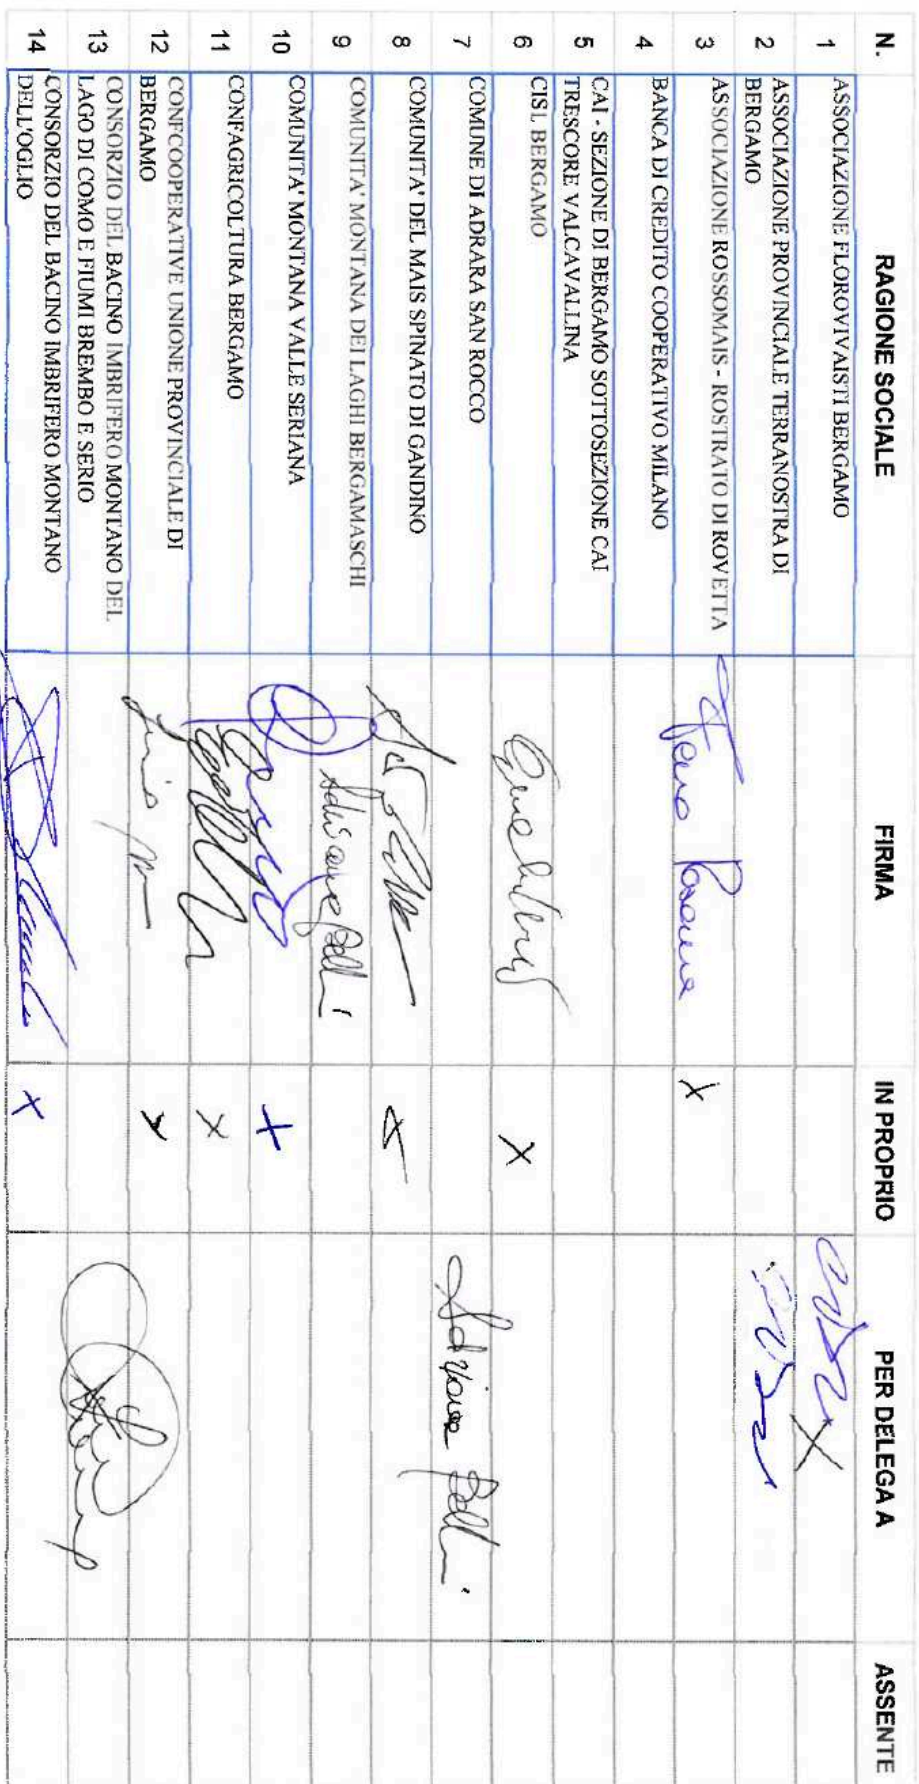 N. RAGIONE SOCIALE FIRMA IN PROPRIO PER DELEGA A ASSENTE
1 ASSOCIAZIONE FLOROVIVAISTI BERGAMO X
2 ASSOCIAZIONE PROVINCIALE TERRANOSTRA DI
BERGAMO
3 ASSOCIAZIONE ROSSOMAIS - ROSTRATO DI ROVETTA X
4 BANCA DI CREDITO COOPERATIVO MILANO
5 CAI - SEZIONE DI BERGAMO SOTTOSEZIONE CAI
TRESCORE VALCAVALLINA
6 CISL BERGAMO X
7 COMUNE DI ADRARA SAN ROCCO Adriana Bellini
8 COMUNITA' DEL MAIS SPINATO DI GANDINO X
9 COMUNITA' MONTANA DEI LAGHI BERGAMASCHI Adriana Bellini
10 COMUNITA' MONTANA VALLE SERIANA X
11 CONFAGRICOLTURA BERGAMO X
12 CONFCOOPERATIVE UNIONE PROVINCIALE DI
BERGAMO X
13 CONSORZIO DEL BACINO IMBRIFERO MONTANO DEL
LAGO DI COMO E FIUMI BREMBO E SERIO
14 CONSORZIO DEL BACINO IMBRIFERO MONTANO
DELL'OGLIO X